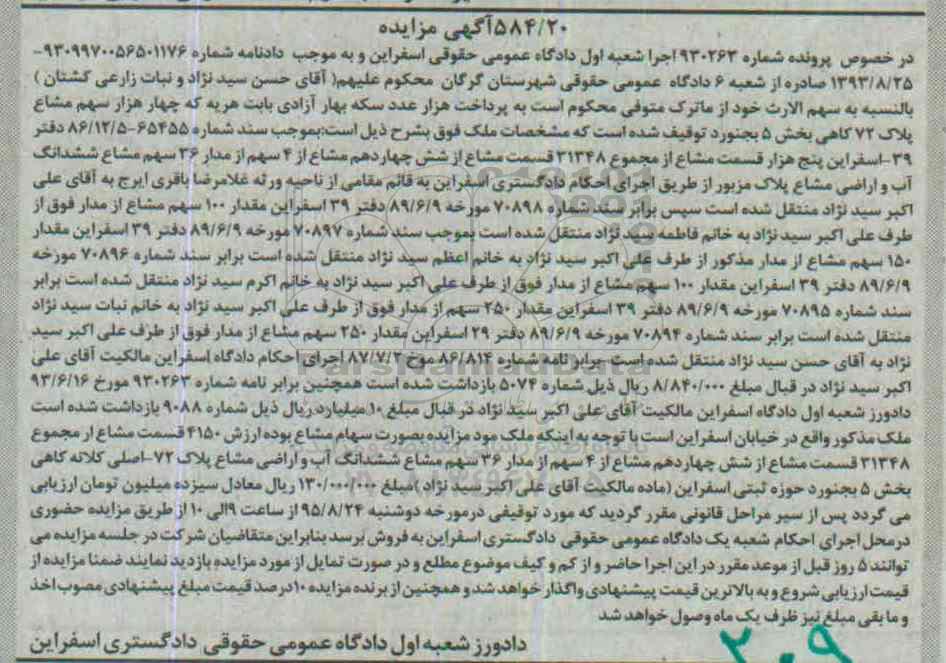 ۵۸۴/۲۰آگهی مزایده
در خصوص پرونده شماره ۹۳۰۲۶۳ اجرا شعبه اول دادگاه عمومی حقوقی اسفراین و به موجب دادنامه شماره ۹۳۰۹۹۷۰۰۵۶۵۰۱۱۷۶-
۱۳۹۳/۸/۲۵ صادره از شعبه ۶ دادگاه عمومی حقوقی شهرستان گرگان محکوم علیهم( آقای حسن سید نژاد و نبات زارعی کشتان )
بالنسبه به سهم الارث خود از ماترک متوفی محکوم است به پرداخت هزار عدد سکه بهار آزادی بابت هریه که چهار هزار سهم مشاع
پلاک ۷۲ کاهی بخش ۵ بجنورد توقیف شده است که مشخصات ملک فوق بشرح ذیل است:بموجب سند شماره ۶۵۴۵۵-۸۶/۱۲/۵ دفتر
۳۹-اسفراین پنج هزار قسمت مشاع از مجموع ۳۱۳۴۸ قسمت مشاع از شش چهاردهم مشاع از ۴ سهم از مدار ۳۶ سهم مشاع ششدانگ
آب و اراضی مشاع پلاک مزبور از طریق اجرای احکام دادگستری اسفراین به قائم مقامی از ناحیه ورثه غلامرضا باقری ایرج به آقای علی
اکبر سید نژاد منتقل شده است سپس برابر سند شماره ۷۰۸۹۸ مورخه ۸۹/۶/۹ دفتر ۳۹ اسفراین مقدار ۱۰۰ سهم مشاع از مدار فوق از
طرف علی اکبر سید نژاد به خانم فاطمه سید نژاد منتقل شده است بموجب سند شماره ۷۰۸۹۷ مورخه ۸۹/۶/۹ دفتر ۳۹ اسفراین مقدار
۱۵۰ سهم مشاع از مدار مذکور از طرف علی اکبر سید نژاد به خانم اعظم سید نژاد منتقل شده است برابر سند شماره ۷۰۸۹۶ مورخه
۸۹/۶/۹ دفتر ۳۹ اسفراین مقدار ۱۰۰ سهم مشاع از مدار فوق از طرف علی اکبر سید نژاد به خانم اکرم سید نژاد منتقل شده است برابر
سند شماره ۷۰۸۹۵ مورخه ۸۹/۶/۹ دفتر ۳۹ اسفراین مقدار ۲۵۰ سهم از مدار فوق از طرف علی اکبر سید نژاد به خانم نبات سید نژاد
منتقل شده است برابر سند شماره ۷۰۸۹۴ مورخه ۸۹/۶/۹ دفتر ۲۹ اسفراین مقدار ۲۵۰ سهم مشاع از مدار فوق از طرف علی اکبر سید
نژاد به آقای حسن سید نژاد منتقل شده است برابر نامه شماره ۸۶/۸۱۴ موخ ۸۷/۷/۲ اجرای احکام دادگاه اسفراین مالکیت آقای علی
اکبر سید نژاد در قبال مبلغ ۸/۸۴۰/۰۰۰ ریال ذیل شماره ۵۰۷۴ بازداشت شده است همچنین برابر نامه شماره ۹۳۰۲۶۳ مورخ ۹۳/۶/۱۶
دادورز شعبه اول دادگاه اسفراین مالکیت آقای علی اکبر سید نژاد در قبال مبلغ ۱۰ میلیارد ریال ذیل شماره ۹۰۸۸ بازداشت شده است
ملک مذکور واقع در خیابان اسفراین است با توجه به اینکه ملک مود مزایده بصورت سهام مشاع بوده ارزش ۴۱۵۰ قسمت مشاع از مجموع
۳۱۳۴۸ قسمت مشاع از شش چهاردهم مشاع از ۴ سهم از مدار ۳۶ سهم مشاع ششدانگ آب و اراضی مشاع پلاک ۷۲-اصلی کلاته کاهی
بخش ۵ بجنورد حوزه ثبتی اسفراین (ماده مالکیت آقای علی اکبر سید نژاد) مبلغ ۱۳۰/۰۰۰/۰۰۰ ریال معادل سیزده میلیون تومان ارزیابی
می گردد پس از سیر مراحل قانونی مقرر گردید که مورد توقیفی درمورخه دوشنبه ۹۵/۸/۲۴ از ساعت ۹الی ۱۰ از طریق مزایده حضوری
درمحل اجرای احکام شعبه یک دادگاه عمومی حقوقی دادگستری اسفراین به فروش برسد بنابراین متقاضیان شرکت در جلسه مزایده می
توانند ۵ روز قبل از موعد مقرر در این اجرا حاضر و از کم و کیف موضوع مطلع و در صورت تمایل از مورد مزایده بازدید نمایند ضمنا مزایده از
قیمت ارزیابی شروع و به بالاترین قیمت پیشنهادی واگذار خواهد شد و همچنین از برنده مزایده ۱۰درصد قیمت مبلغ پیشنهادی مصوب اخذ
و ما بقی مبلغ نیز ظرف یک ماه وصول خواهد شد
دادورز شعبه اول دادگاه عمومی حقوقی دادگستری اسفراین
۲۰۹
ParsNamadData